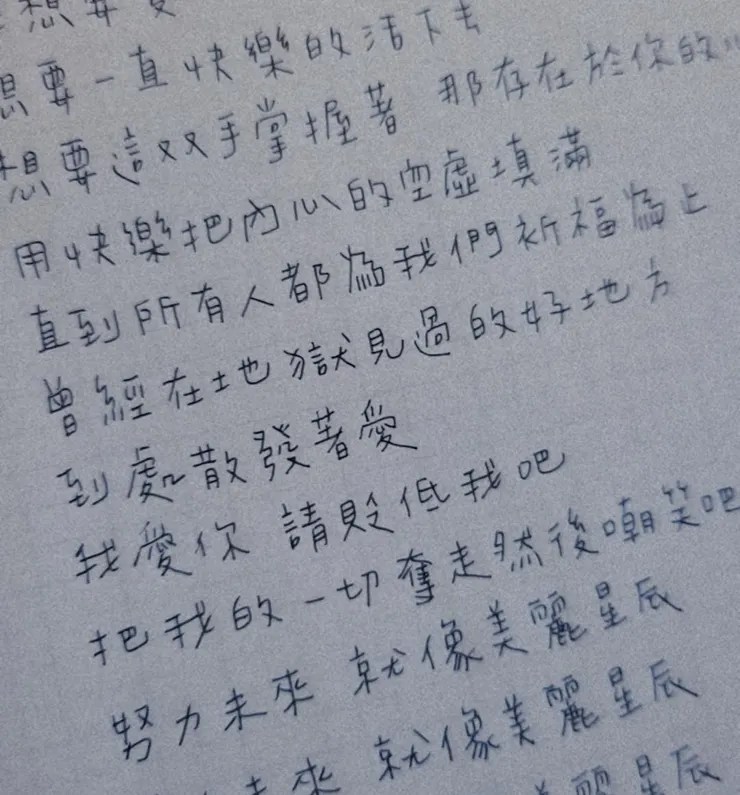 想要
想要一直快樂的活下去
想要這双手掌握著 那存在於你的
用快樂把內心的空虛填滿
直到所有人都為我們祈福為止
曾經在地獄見過的好地方
到處散發著愛
我愛你 請貶低我吧
把我的一切奪走然後嘲笑吧
努力未來 就像美麗星辰
未來 就像美麗星辰
美麗星辰